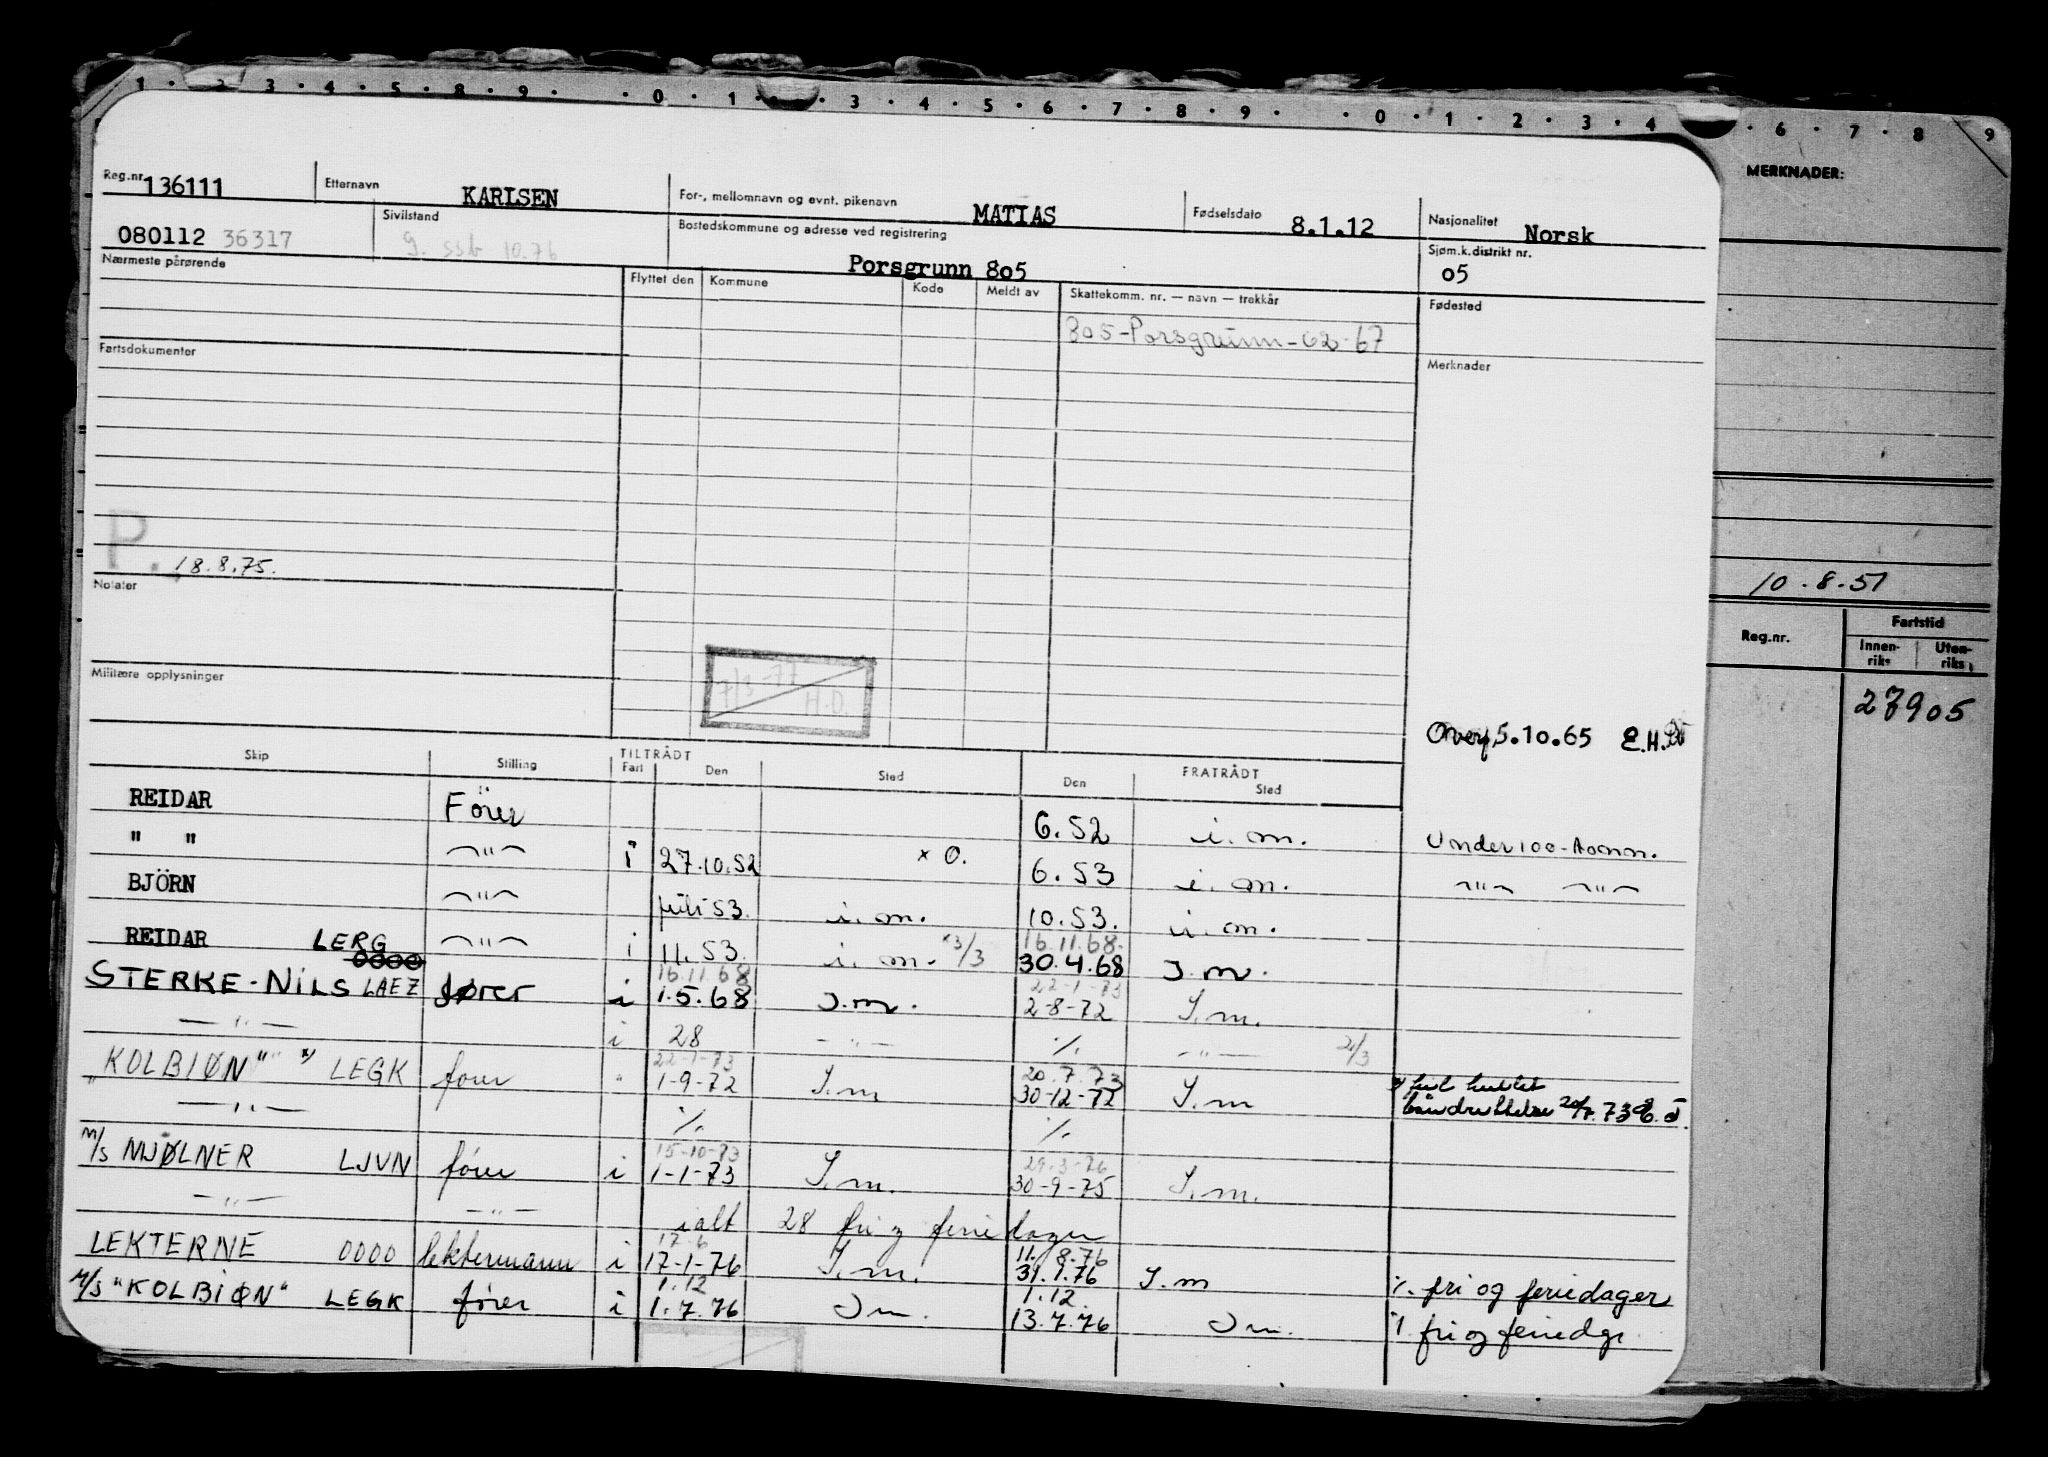 1 · 2 · 3 · 4 · 5 · 8 · 9 · · 0 · 1 · · 3 · 4 · 5 · 6 · 7 · 8 · 9 · · 0 · 1 · 2 · 3 · 4 · 6 · 7 · 8 · 9
MERKNADER:
Reg.nr. 136111 Etternavn KARLSEN For-, mellomnavn og evnt. pikenavn MATIAS Fødselsdato 8.1.12 Nasjonalitet Norsk
080112 36317 Sivilstand g. ssb 10.76 Bostedskommune og adresse ved registrering Porsgrunn 805 Sjøm.k.distrikt nr. 05
Nærmeste pårørende Flyttet den Kommune Kode Meldt av Skattekomm. nr. — navn — trekkår Fødested
805-Porsgrunn-62-67
Fartsdokumenter Merknader
P. 18.8.75.
10.8.51
Notater
Reg.nr. Fartstid
Innen-riks Uten-riks
7/3-77 H.O.
Militære opplysninger
27905
Overf 5.10.65 E.H.
Skip Stilling TILTRÅDT Fart Den Sted FRATRÅDT Den Sted
REIDAR Fører 6.52 i.m. Under 100-tonn.
" " —"— i 27.10.52 x O. 6.53 i.m. —"— —"—
BJÖRN —"— juli 53. i.m. 10.53. i.m.
REIDAR LERG 0000 —"— i 11.53. i.m. x3/3 16.11.68. 30.4.68 I.m.
STERKE-NILS LAEZ fører i 16.11.68 1.5.68 I.m. 22-1-73 2-8-72 I.m.
—"— i 28 —"— % —"— 2/3
"KOLBIØN" x) LEGK fører " 22-1-73 1-9-72 I.m 20.7.73 30-12-72 I.m
—"— % % 20/7.73
M/S MJØLNER LJVN fører i 15-10-73 1-1-73 I.m. 29.3-76 30-9-75 I.m.
—"— —"— ialt 28 fri og feriedager
LEKTERNE 0000 lektermann i 17-6 17-1-76 I.m. 11.8.76 31.1.76 I.m % fri og feriedager
M/S "KOLBIØN" LEGK fører i 1.12 1.7.76 Im. 1.12. 13.7.76 Im. % fri og feriedgr